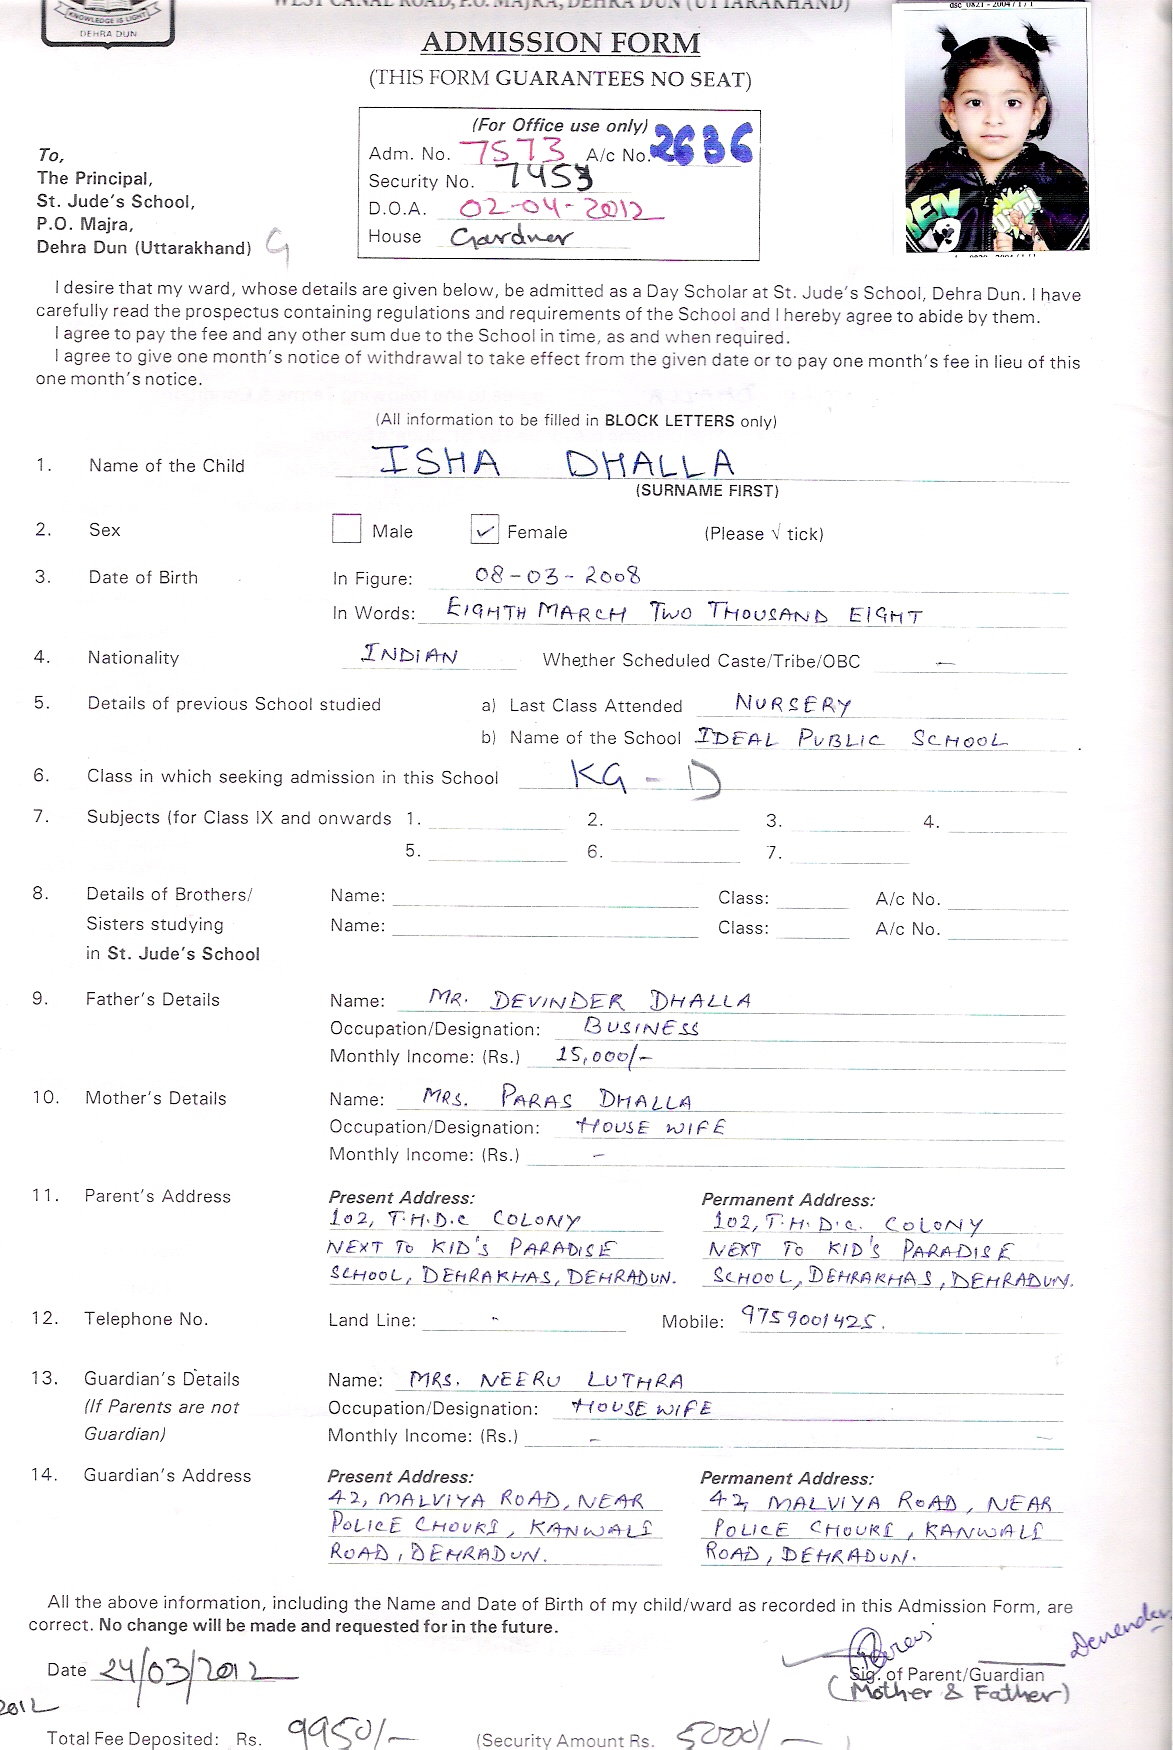 KNOWLEDGE IS LIGHT
DEHRA DUN
WEST CANAL ROAD, P.O. MAJRA, DEHRA DUN (UTTARAKHAND)
ADMISSION FORM
(THIS FORM GUARANTEES NO SEAT)
dsc_0821 - 2004 / 1 / 1
(For Office use only)
Adm. No. 7573 A/c No. 2636
Security No. 7453
D.O.A. 02-04-2012
House Gardner
To,
The Principal,
St. Jude's School,
P.O. Majra,
Dehra Dun (Uttarakhand) G
I desire that my ward, whose details are given below, be admitted as a Day Scholar at St. Jude's School, Dehra Dun. I have
carefully read the prospectus containing regulations and requirements of the School and I hereby agree to abide by them.
I agree to pay the fee and any other sum due to the School in time, as and when required.
I agree to give one month's notice of withdrawal to take effect from the given date or to pay one month's fee in lieu of this
one month's notice.
(All information to be filled in BLOCK LETTERS only)
1. Name of the Child ISHA DHALLA
(SURNAME FIRST)
2. Sex Male ✓ Female (Please √ tick)
3. Date of Birth In Figure: 08-03-2008
In Words: EIGHTH MARCH TWO THOUSAND EIGHT
4. Nationality INDIAN Whether Scheduled Caste/Tribe/OBC —
5. Details of previous School studied a) Last Class Attended NURSERY
b) Name of the School IDEAL PUBLIC SCHOOL
6. Class in which seeking admission in this School KG - D
7. Subjects (for Class IX and onwards 1. 2. 3. 4.
5. 6. 7.
8. Details of Brothers/ Name: Class: A/c No.
Sisters studying Name: Class: A/c No.
in St. Jude's School
9. Father's Details Name: MR. DEVINDER DHALLA
Occupation/Designation: BUSINESS
Monthly Income: (Rs.) 15,000/-
10. Mother's Details Name: MRS. PARAS DHALLA
Occupation/Designation: HOUSE WIFE
Monthly Income: (Rs.) -
11. Parent's Address Present Address: Permanent Address:
102, T.H.D.C COLONY 102, T.H.D.C. COLONY
NEXT TO KID'S PARADISE NEXT TO KID'S PARADISE
SCHOOL, DEHRAKHAS, DEHRADUN. SCHOOL, DEHRAKHAS, DEHRADUN.
12. Telephone No. Land Line: - Mobile: 9759001425.
13. Guardian's Details Name: MRS. NEERU LUTHRA
(If Parents are not Occupation/Designation: HOUSE WIFE
Guardian) Monthly Income: (Rs.) -
14. Guardian's Address Present Address: Permanent Address:
42, MALVIYA ROAD, NEAR 42, MALVIYA ROAD, NEAR
POLICE CHOUKI, KANWALI POLICE CHOUKI, KANWALI
ROAD, DEHRADUN. ROAD, DEHRADUN.
All the above information, including the Name and Date of Birth of my child/ward as recorded in this Admission Form, are
correct. No change will be made and requested for in the future.
Paras Devender
Date 24/03/2012 Sig. of Parent/Guardian
(Mother & Father)
2012
Total Fee Deposited: Rs. 9950/- (Security Amount Rs. 5000/- )